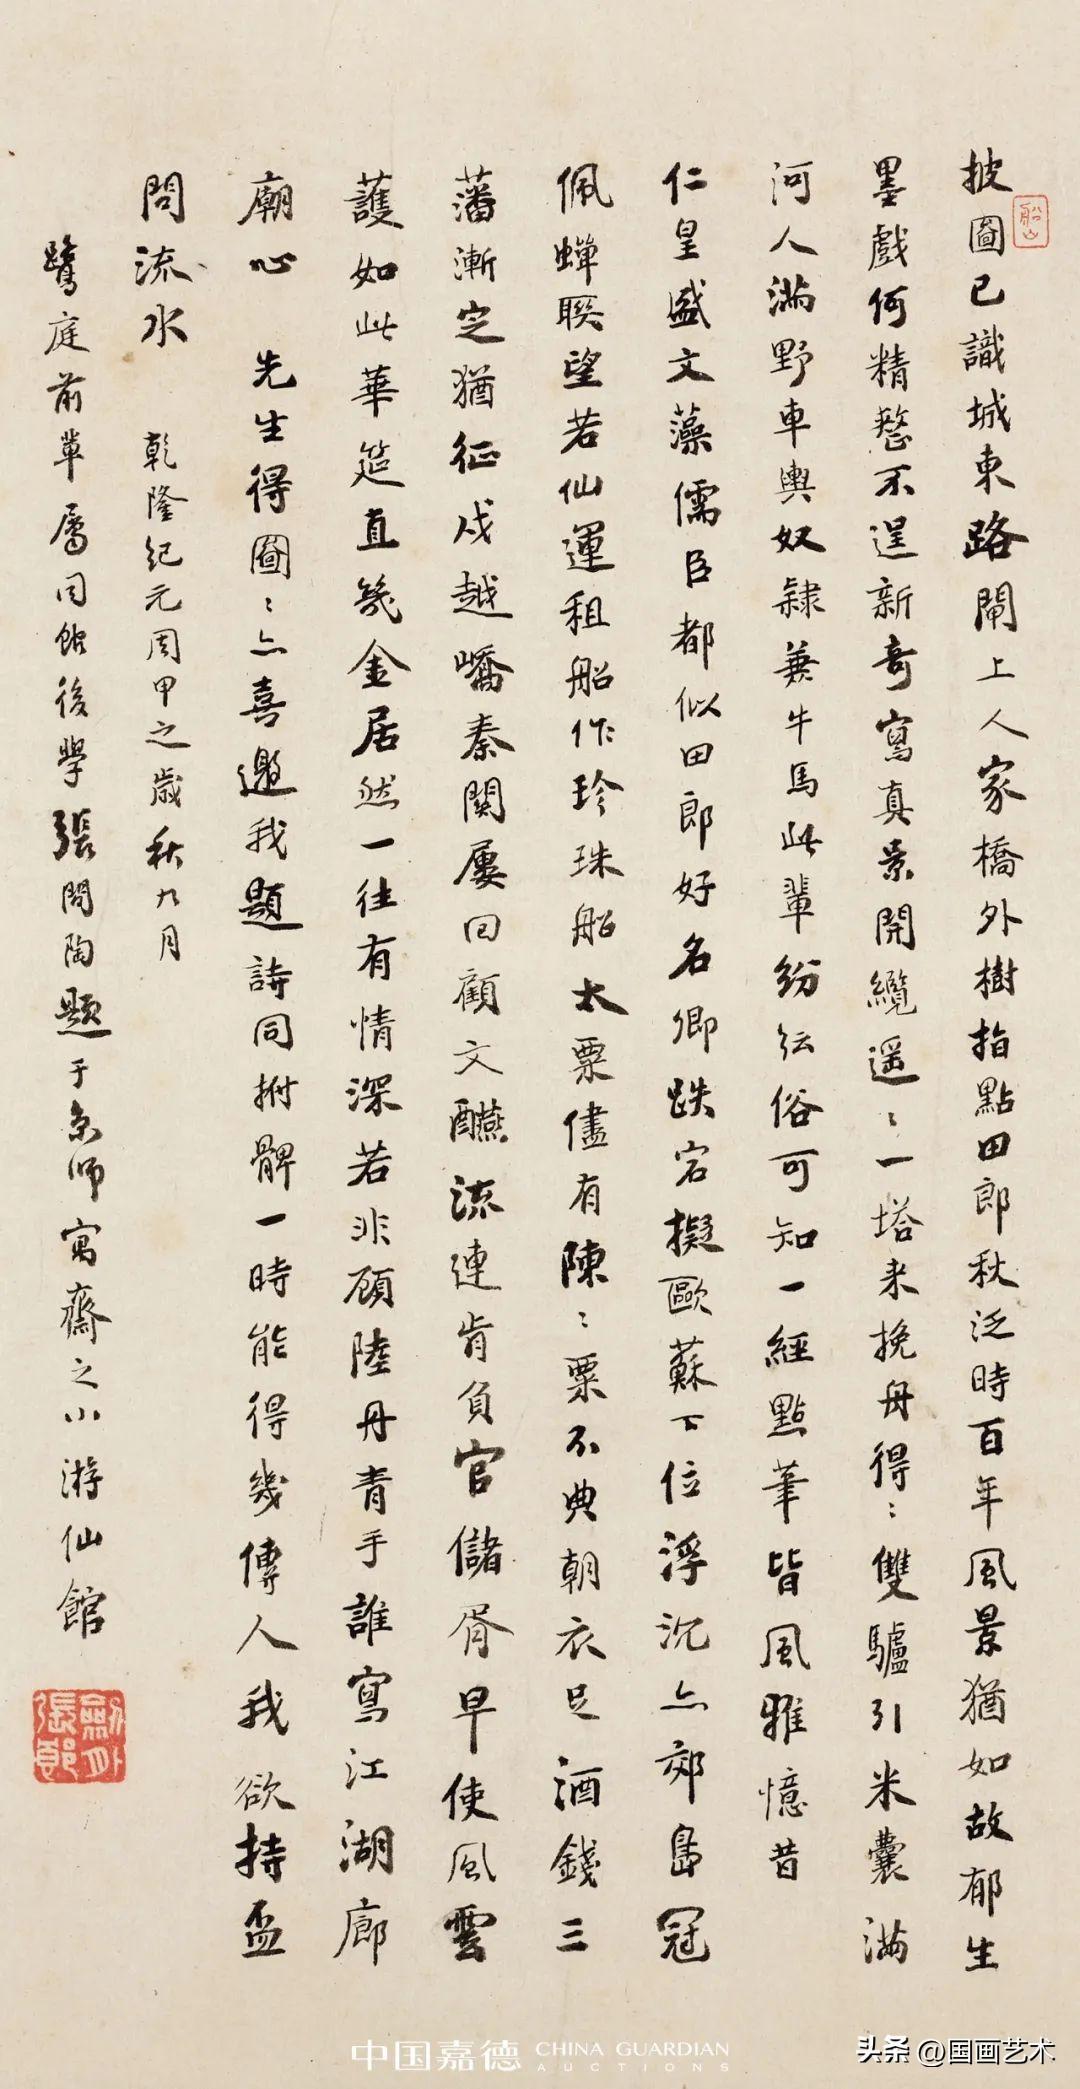 船山
披圖已識城東路閘上人家橋外樹指點田郎秋泛時百年風景猶如故郁生
墨戲何精整不逞新奇寫真景開纜遥〻一塔来挽舟得〻雙驢引米囊满
河人滿野車輿奴隸兼牛馬此輩紛紜俗可知一經點筆皆風雅憶昔
仁皇盛文藻儒臣都似田郎好名卿跌宕擬歐蘇下位浮沉亦郊島冠
佩蟬聯望若仙運租船作珍珠船太粟儘有陳〻粟不典朝衣足酒錢三
藩漸定猶征戍越嶠秦關屢回顧文醼流連肯負官儲胥早使風雲
護如此華筵直幾金居然一往有情深若非顾陸丹青手誰寫江湖廊
廟心 先生得圖〻亦喜邀我題詩同拊髀一時能得幾傳人我欲持盃
問流水 乾隆紀元周甲之歲秋九月
鷺庭前輩屬同館後學張問陶題于京師寓齋之小游仙館
中国嘉德 CHINA GUARDIAN AUCTIONS
头条 @国画艺术